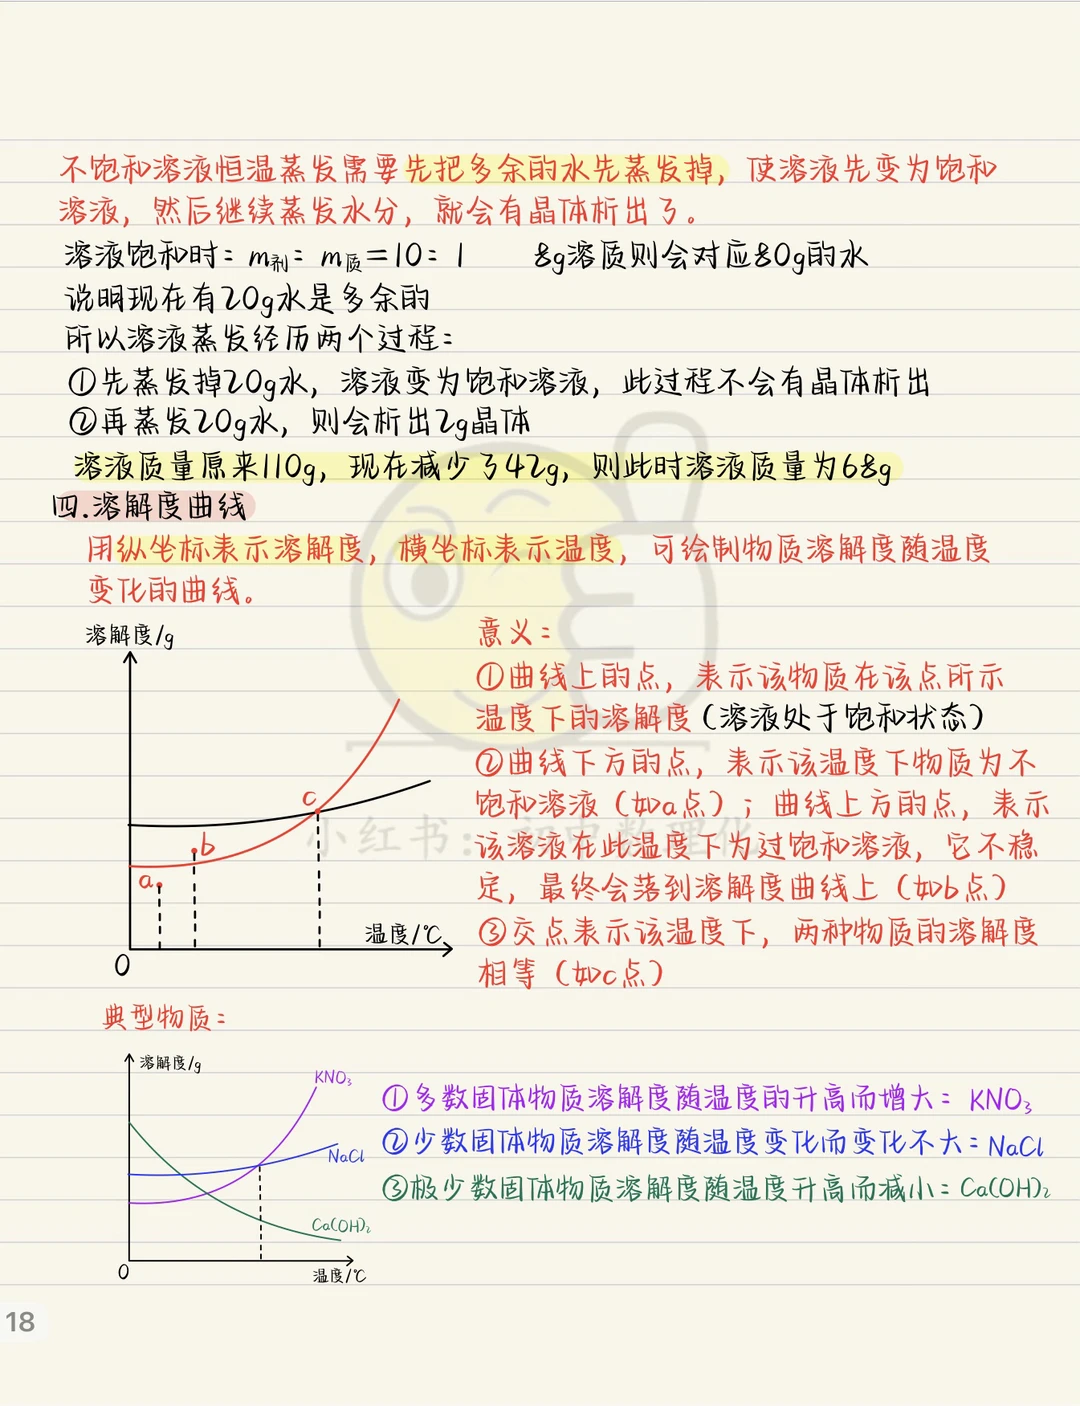 不饱和溶液恒温蒸发需要先把多余的水先蒸发掉，使溶液先变为饱和
溶液，然后继续蒸发水分，就会有晶体析出了。
溶液饱和时：m剂：m质＝10：1 8g溶质则会对应80g的水
说明现在有20g水是多余的
所以溶液蒸发经历两个过程：
①先蒸发掉20g水，溶液变为饱和溶液，此过程不会有晶体析出
②再蒸发20g水，则会析出2g晶体
溶液质量原来110g，现在减少了42g，则此时溶液质量为68g
四.溶解度曲线
用纵坐标表示溶解度，横坐标表示温度，可绘制物质溶解度随温度
变化的曲线。
溶解度/g
c
b
a
温度/℃
0
意义：
①曲线上的点，表示该物质在该点所示
温度下的溶解度（溶液处于饱和状态）
②曲线下方的点，表示该温度下物质为不
饱和溶液（如a点）；曲线上方的点，表示
该溶液在此温度下为过饱和溶液，它不稳
定，最终会落到溶解度曲线上（如b点）
③交点表示该温度下，两种物质的溶解度
相等（如c点）
小红书：初中数理化
典型物质：
溶解度/g
KNO₃
NaCl
Ca(OH)₂
0
温度/℃
①多数固体物质溶解度随温度的升高而增大：KNO₃
②少数固体物质溶解度随温度变化而变化不大：NaCl
③极少数固体物质溶解度随温度升高而减小：Ca(OH)₂
18